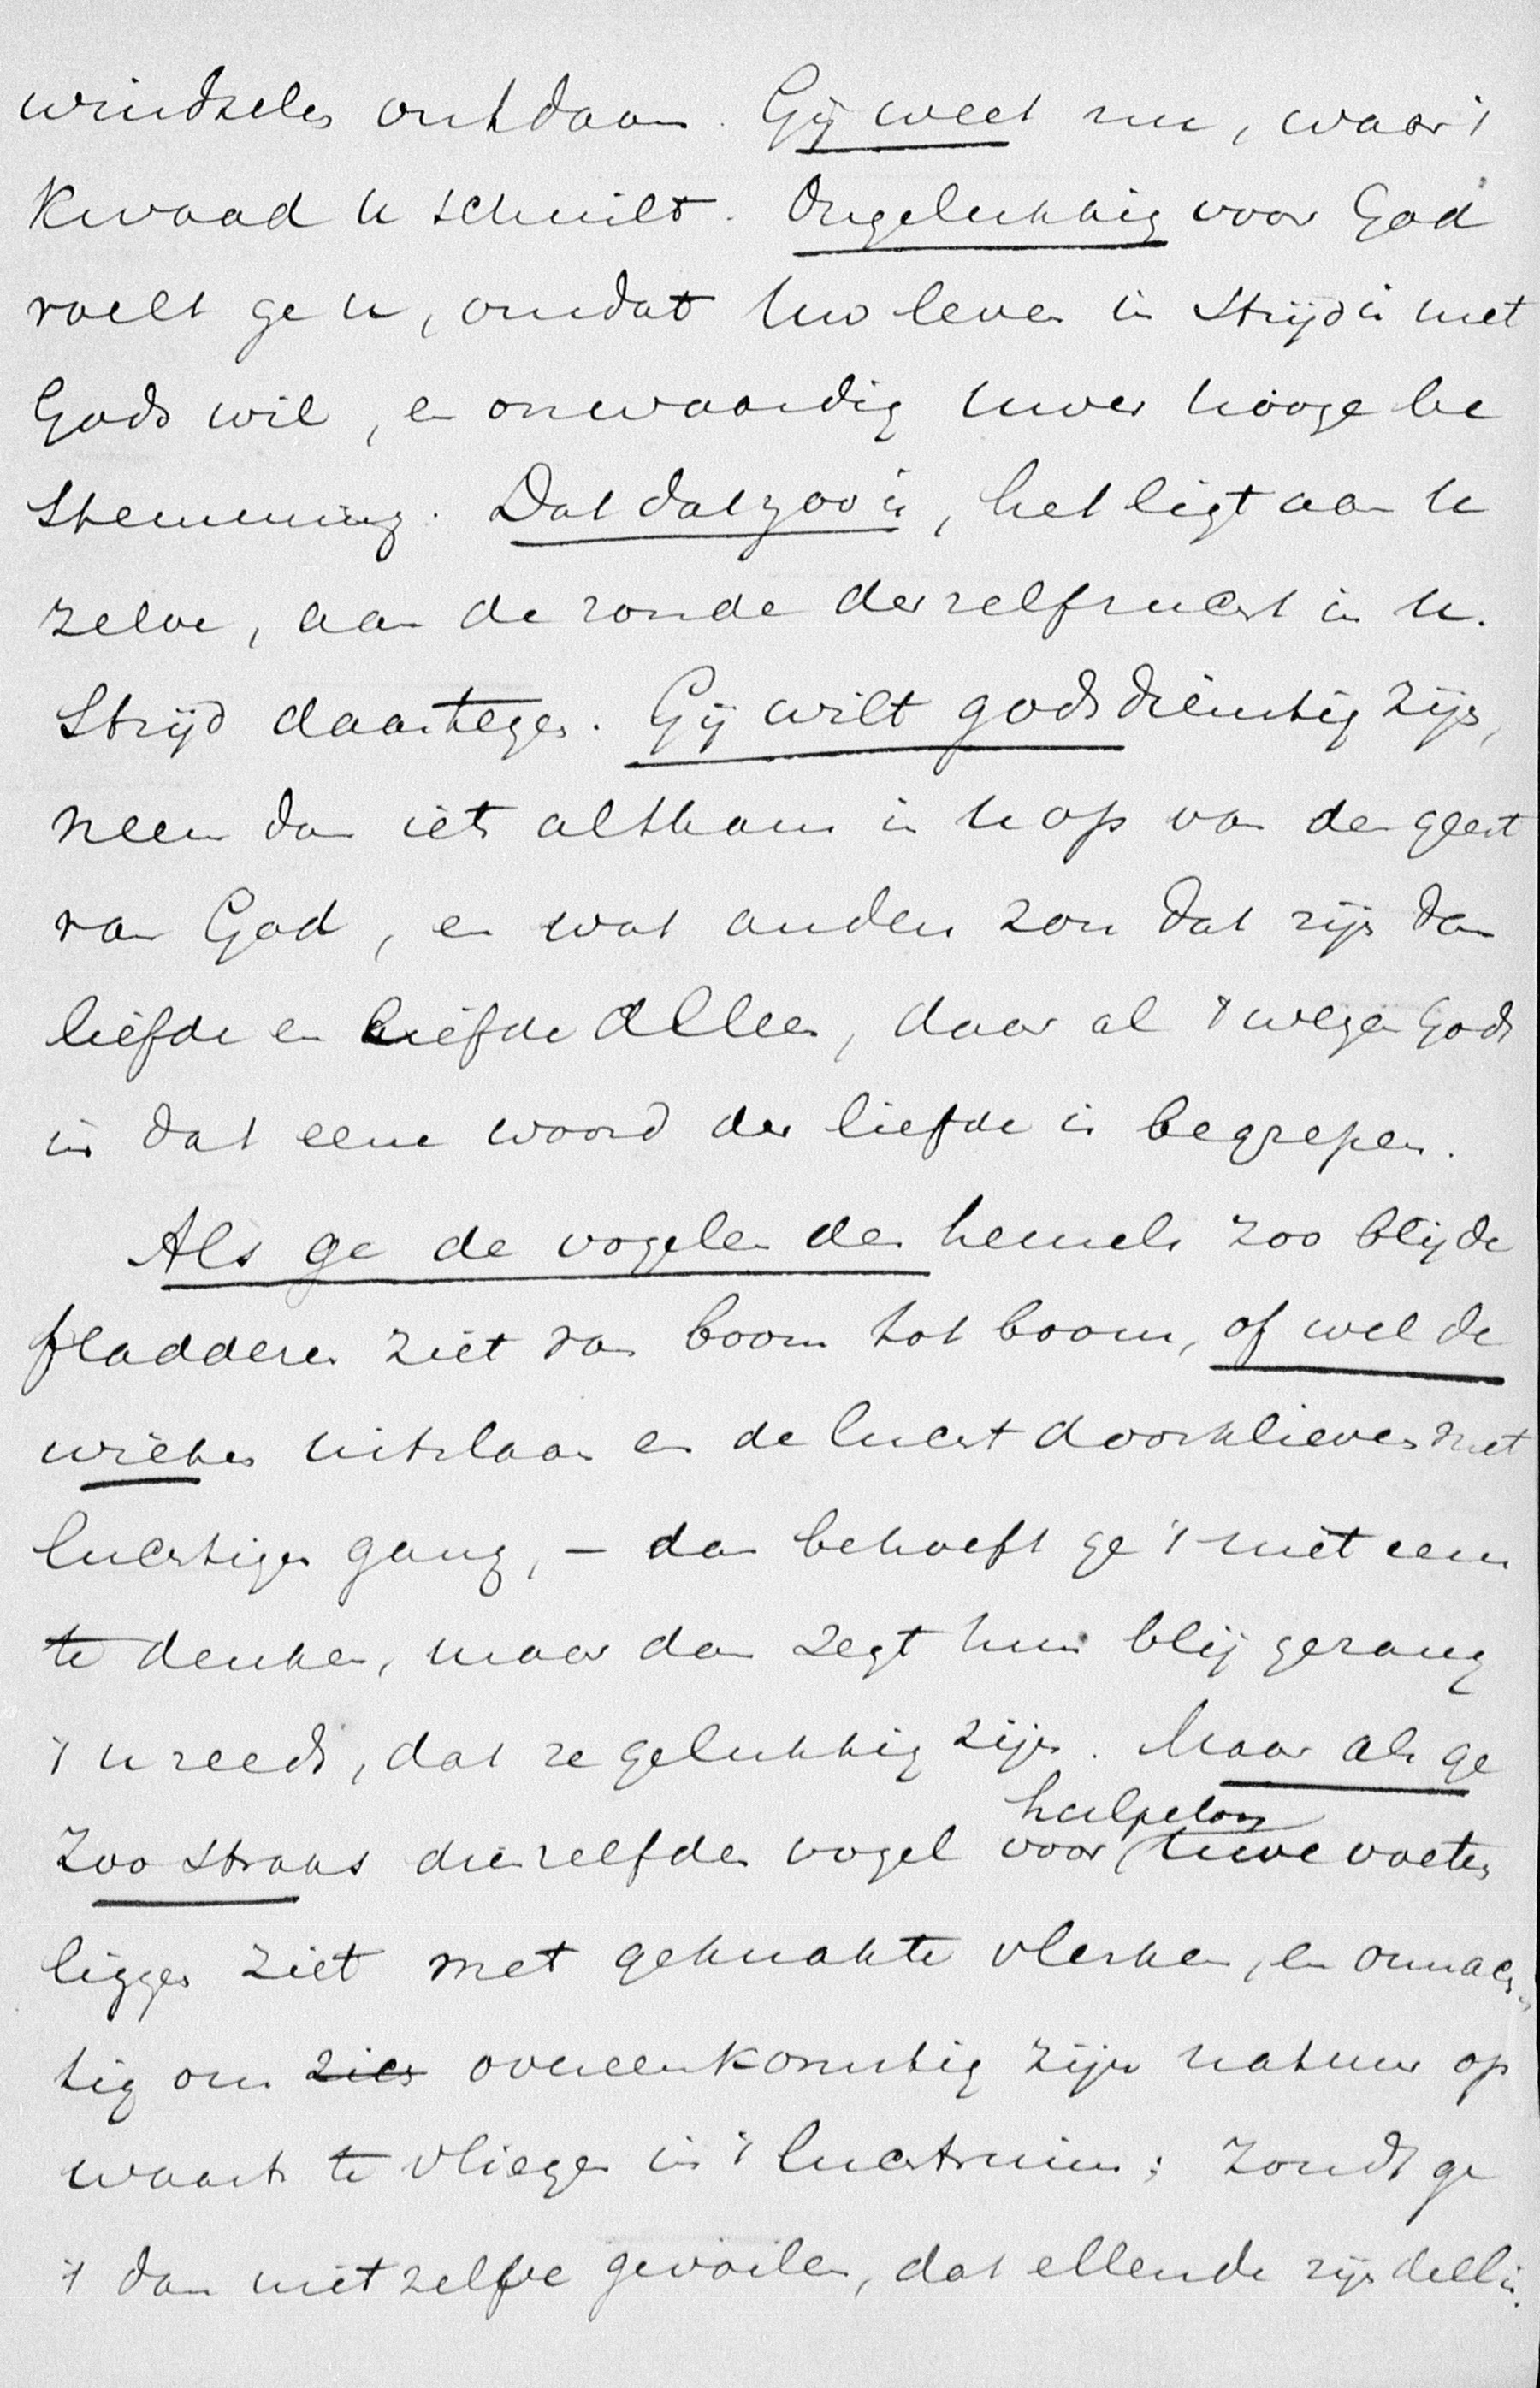 windselen ontdaan. Gij weet nu, waar 't
kwaad u schuilt. Ongelukkig voor God
voelt ge u, omdat Uw leven in strijd is met
Gods wil, en onwaardig Uwer hooge be
stemming. Dat dat zoo is, het ligt aan U
zelve, aan de zonde der zelfzucht in U.
Strijd daartegen. Gij wilt godsdienstig zijn,
neem dan iets althans in U op van den geest
van God, en wat anders zou dat zijn dan
liefde en liefde alleen, daar al 't wezen Gods
in dat eene woord der liefde is begrepen.
Als ge de vogelen des hemels zoo blijde
fladderen ziet van boom tot boom, of wel de
wieken uitslaan en de lucht doorklieven met
luchtigen gang, – dan behoeft ge 't niet eens
te denken, maar dan zegt hun blij gezang
't U reeds, dat ze gelukkig zijn. Maar als ge
hulpeloos
zoo straks dienzelfden vogel voor Uwe voeten
liggen ziet met geknakte vlerken, en onmach
tig om zich overeenkomstig zijn natuur op
waarts te vliegen in 't luchtruim; zoudt ge
't dan niet zelve gevoelen, dat ellende zijn deel is.